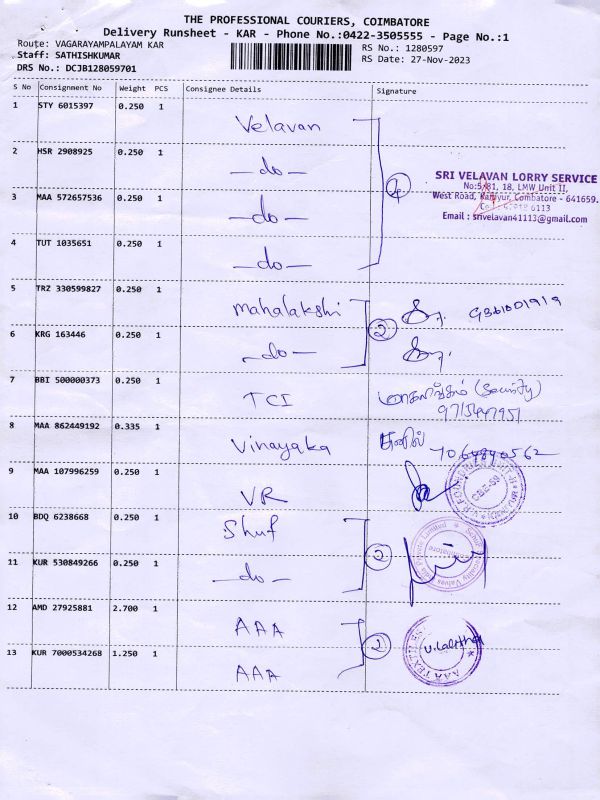 THE PROFESSIONAL COURIERS, COIMBATORE
Delivery Runsheet - KAR - Phone No.:0422-3505555 - Page No.:1
Route: VAGARAYAMPALAYAM KAR
RS No.: 1280597
Staff: SATHISHKUMAR
RS Date: 27-Nov-2023
DRS No.: DCJB128059701
S No Consignment No Weight PCS Consignee Details Signature
1 STY 6015397 0.250 1 Velavan
2 HSR 2908925 0.250 1 -do-
3 MAA 572657536 0.250 1 -do-
4 TUT 1035651 0.250 1 -do-
SRI VELAVAN LORRY SERVICE
No:5/81, 18, LMW Unit II,
West Road, Coimbatore - 641659.
Email : srivelavan41113@gmail.com
5 TRZ 330599827 0.250 1 mahalakshi
6 KRG 163446 0.250 1 -do- 2
7 BBI 500000373 0.250 1 TCI (Security)
8 MAA 862449192 0.335 1 Vinayaka
9 MAA 107996259 0.250 1 VR
10 BDQ 6238668 0.250 1 Shuf
11 KUR 530849266 0.250 1 -do- 2
12 AMD 27925881 2.700 1 AAA
13 KUR 7000534268 1.250 1 AAA 2
U.Lalitha